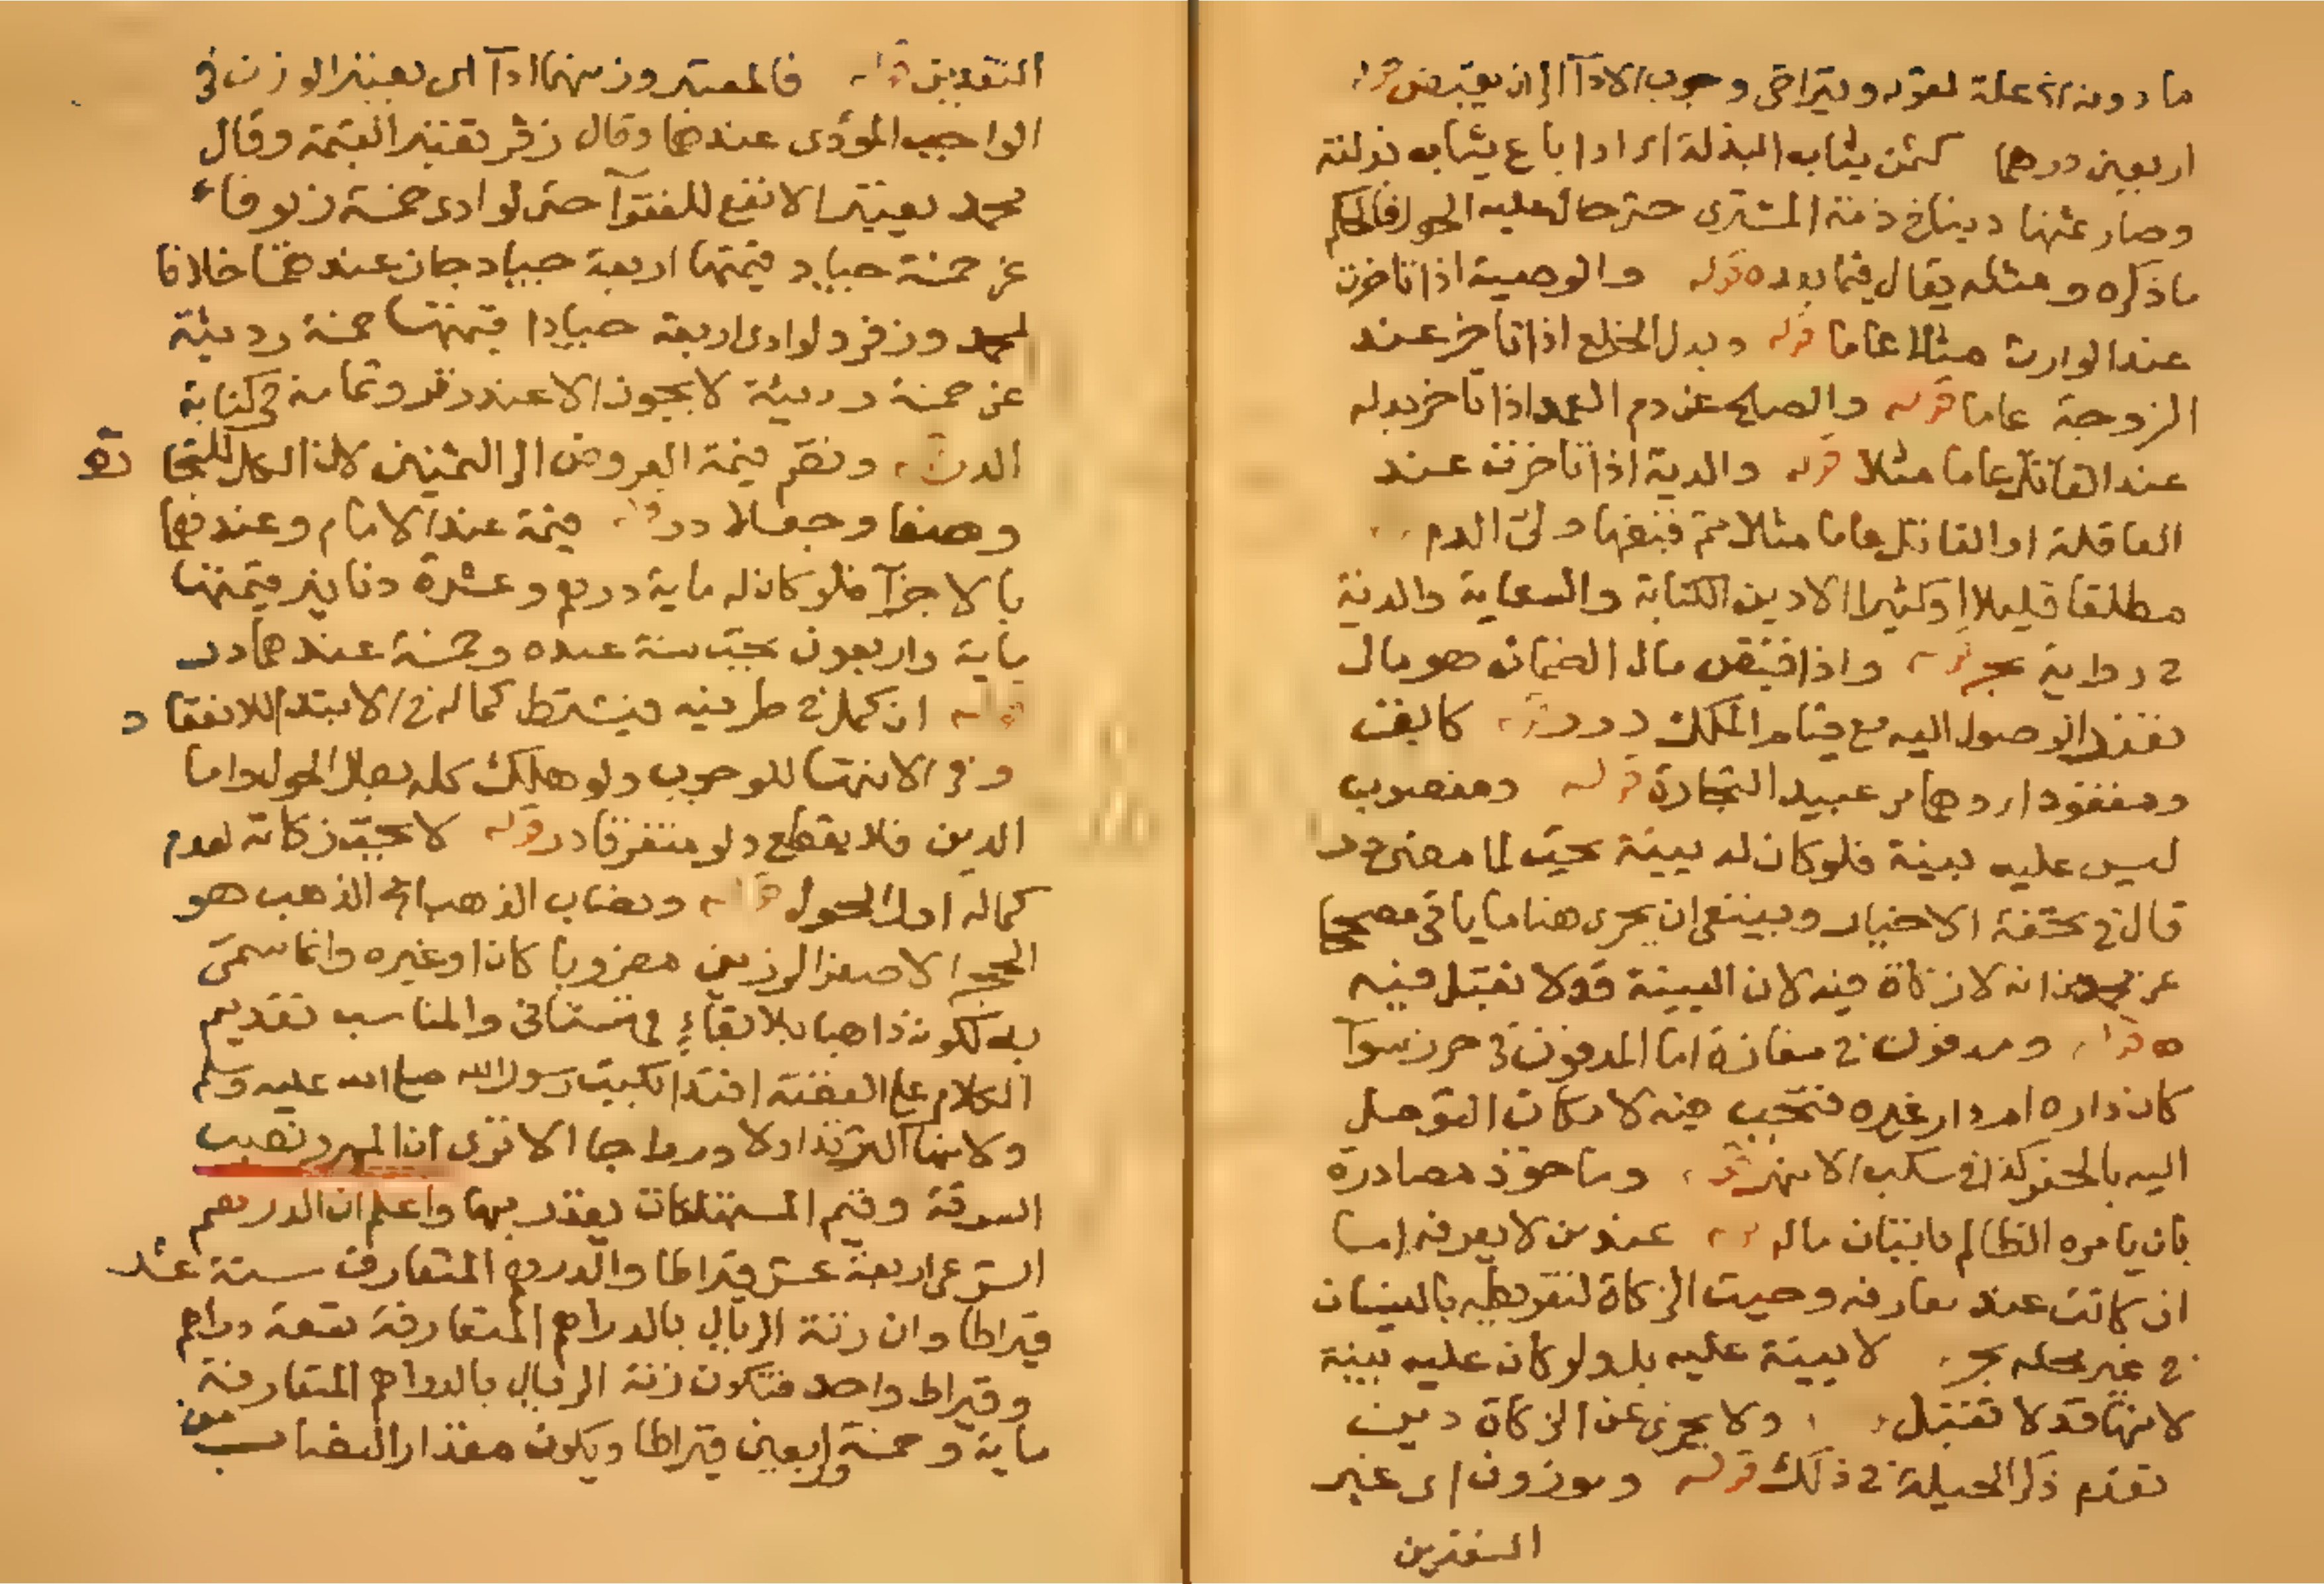 ما دونه اي علة لقوله ويتراخى وجوب الادآ الى ان يقبض قوله
اربعين درهما كثمن ثياب البذلة اي اذا باع ثياب بذلته
وصار ثمنها دينا في ذمة المشتري حتى حال عليه الحول فالحكم
ما ذكره ومثله يقال فيما بعده قوله والوصية اذا تاخرت
عند الوارث مثلا عاما قوله وبدل الخلع اذا تاخر عند
الزوجة عاما قوله والصلح عن دم العمد اذا تاخر بدله
عند القاتل عاما مثلا قوله والدية اذا تاخرت عند
العاقلة او القاتل عاما مثلا ثم قبضها ولي الدم
مطلقا قليلا او كثيرا الا دين الكتابة والسعاية والدية
في رواية بحر قوله واذا قبض مال الضمان هو مال
تعذر الوصول اليه مع قيام الملك درر قوله كابق
ومفقود اراد هما من عبيد التجارة قوله ومغصوب
ليس عليه بينة فلو كان له بينة تجب لما مضى در
قال في تحفة الاخيار وينبغي ان يجرى هنا ما ياتي مصححا
عن محمد من انه لا زكاة فيه لان البينة قد لا تقبل فيه
ه قوله ومدفون في مفازة اما المدفون في حرز سوآ
كان داره او دار غيره فتجب فيه لامكان التوصل
اليه بالحفر كذا في سكب الانهر قوله وماخوذ مصادرة
بان يامره الظالم باتيان ماله قوله عند من لا يعرفه اما
ان كانت عند معارفه وجبت الزكاة لتفريطه بالنسيان
في غير محله بحر لا بينة عليه بل ولو كان عليه بينة
لانها قد لا تقبل ولا يجزى عن الزكاة دين
تقدم ذكر الحيلة في ذلك قوله وموزون اي غير
النقدين
النقدين قوله فالمعتبر وزنهما ادآ اى يعتبر الوزن في
الواجب المؤدى عندهما وقال زفر تعتبر القيمة وقال
محمد يعتبر الانفع للفقرآ حتى لو ادى خمسة زيوفا
عن خمسة جياد قيمتها اربعة جياد جاز عندهما خلافا
لمحمد وزفر ولو ادى اربعة جيادا قيمتها خمسة رديئة
عن خمسة رديئة لا يجوز الا عند زفر وتمامه في كتابة
الدر قوله وتضم قيمة العروض الى الثمنين لان الكل للتجا رة
وضعا وجعلا در قوله قيمة عند الامام وعندهما
بالاجزآ فلو كان له ماية درهم وعشرة دنانير قيمتها
ماية واربعون تجب ستة عنده وخمسة عندهما در
قوله ان كمل في طرفيه فيشترط كماله في الابتدا للانعقا د
وفي الانتها للوجوب ولو هلك كله بطل الحول واما
الدين فلا يقطع ولو مستغرقا در قوله لا تجب زكاته لعدم
كماله اول الحول قوله ونصاب الذهب اي الذهب هو
الحجر الاصفر الرزين مضروبا كان او غيره وانما سمي
به لكونه ذاهبا بلا بقاءٍ في تستاني والمناسب تقديم
الكلام على الفضة اقتدا بكتب رسول الله صلى الله عليه وسلم
ولانها اكثر تداولا ورواجا الا ترى ان المهر ونصاب
السرقة وقيم المستهلكات يقدر بها واعلم ان الدرهم
الشرعي اربعة عشر قيراطا والدرهم المتعارف ستة عشر
قيراطا وان زنة الريال بالدراهم المتعارفة تسعة دراهم
وقيراط واحد فتكون زنة الريال بالدراهم المتعارفة
ماية وخمسة واربعين قيراطا ويكون مقدار النصاب من